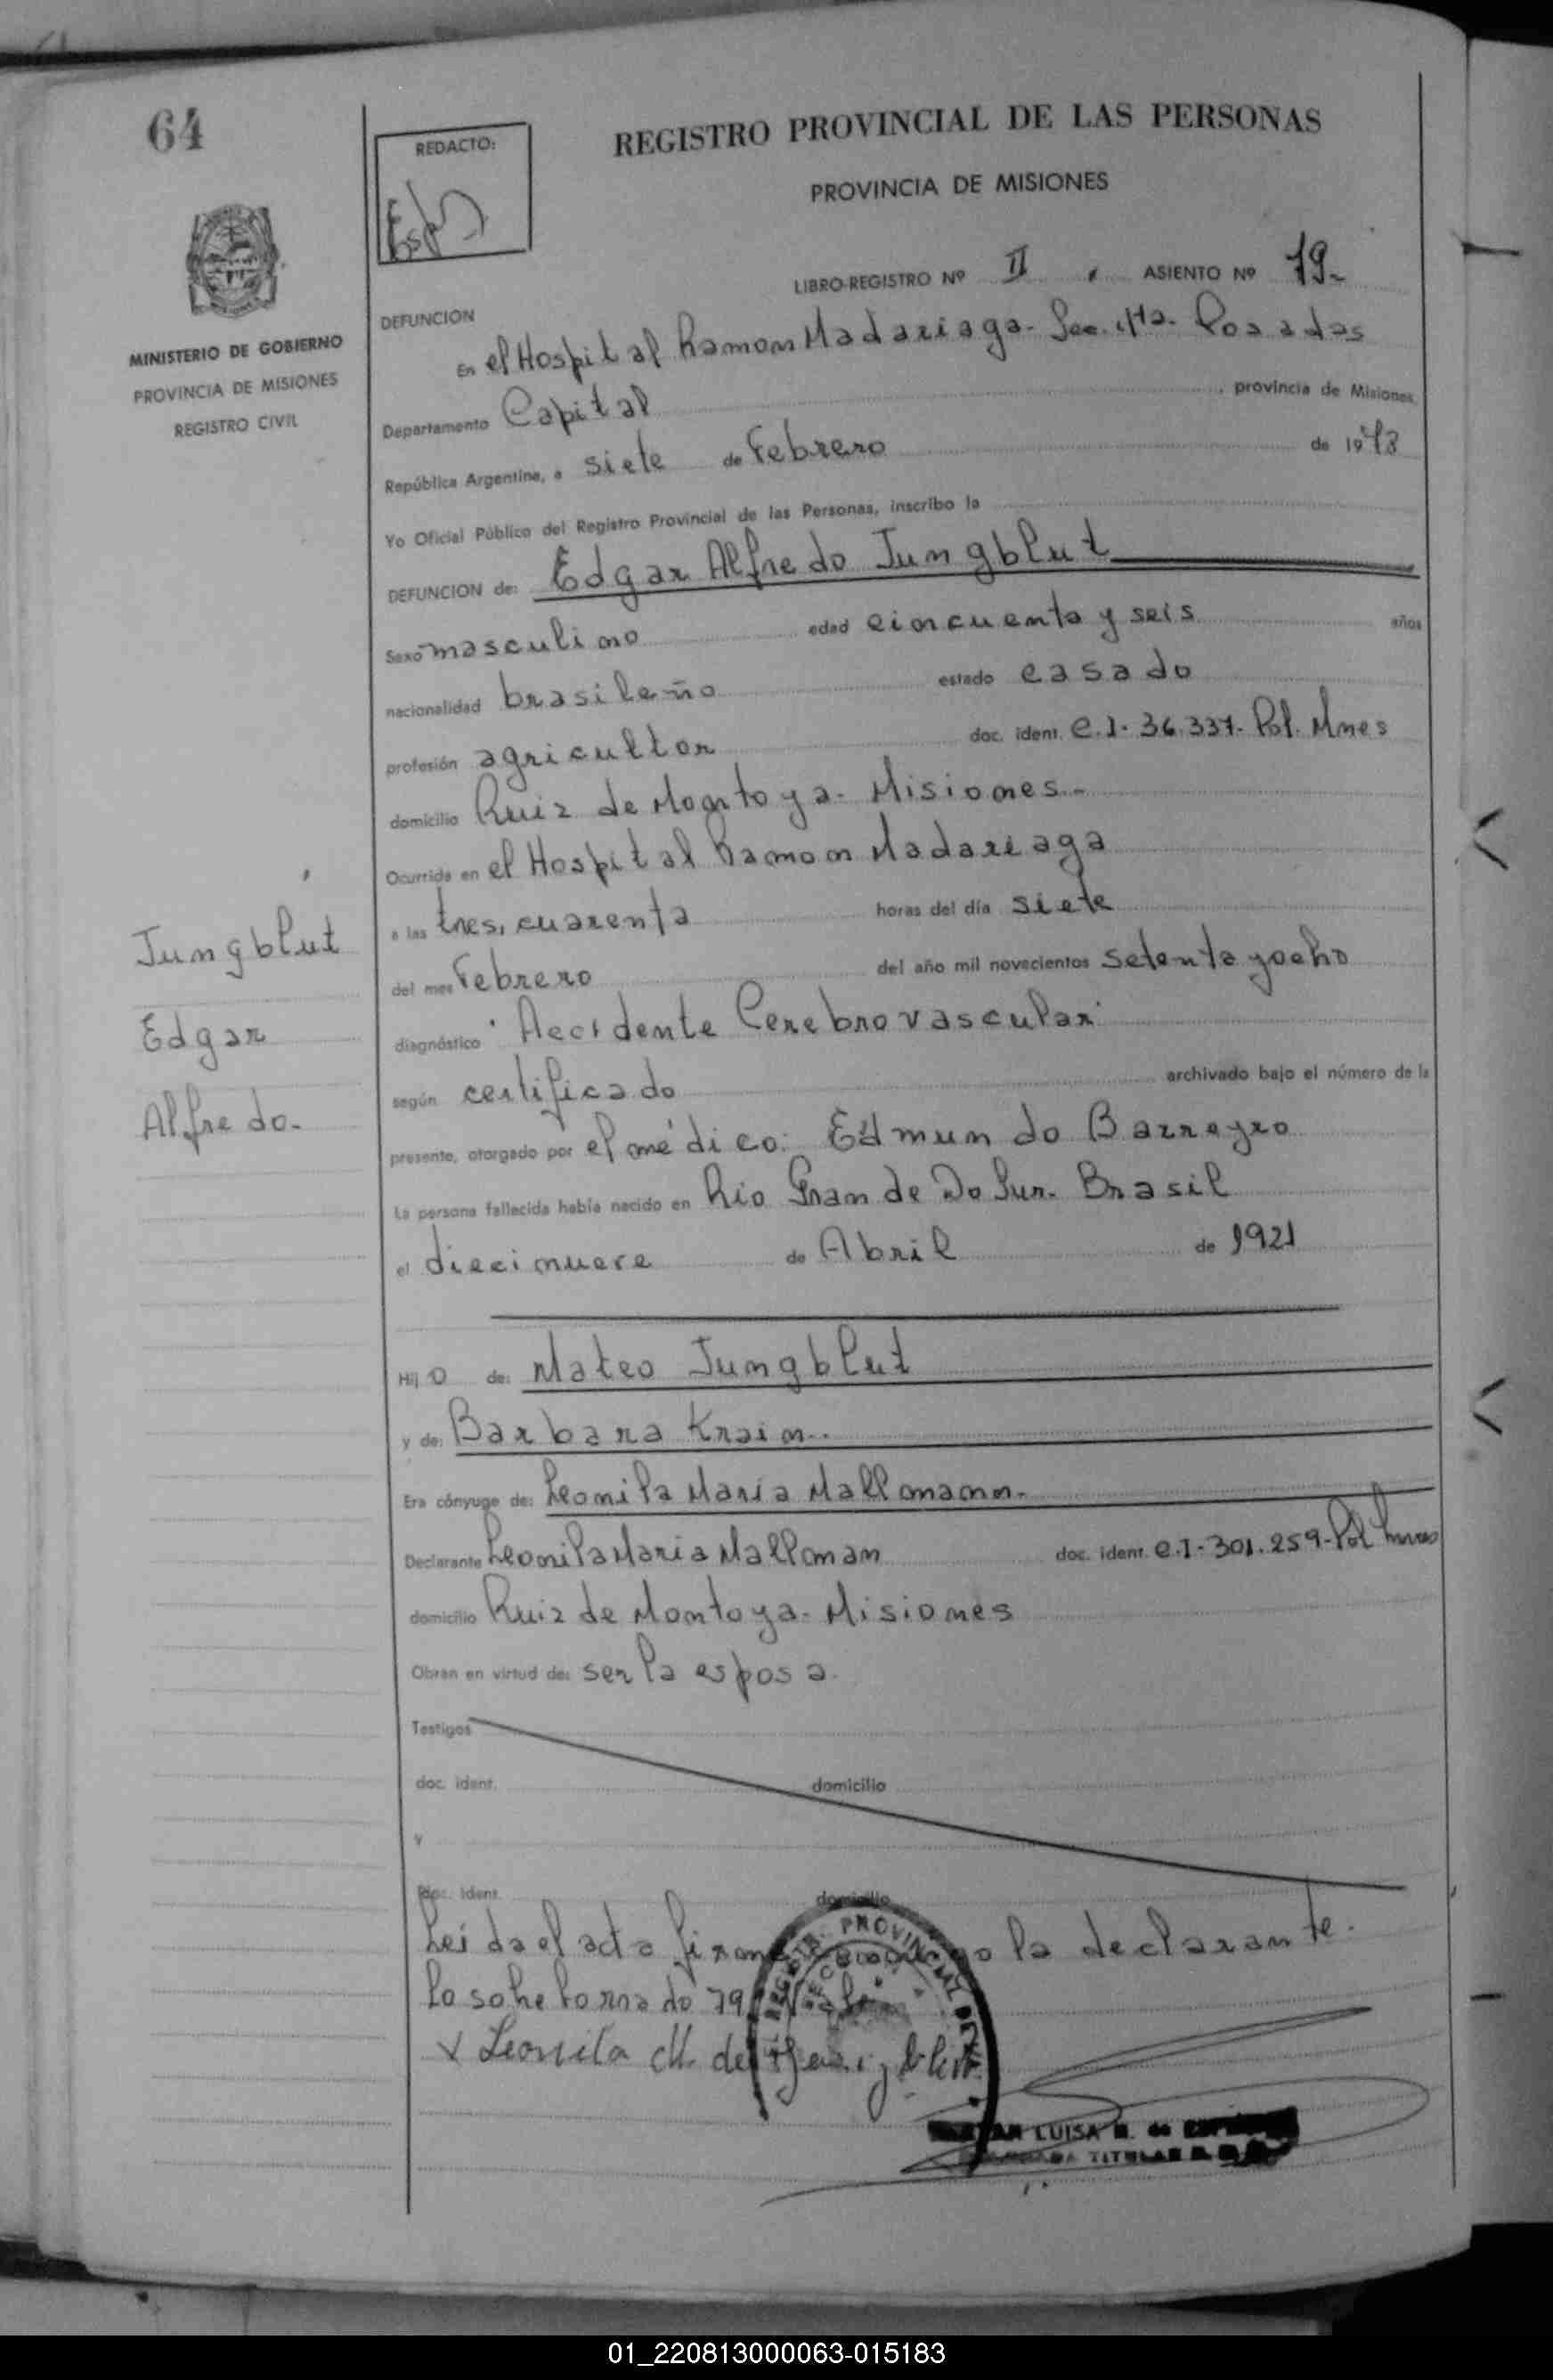 64
REDACTO:
REGISTRO PROVINCIAL DE LAS PERSONAS
PROVINCIA DE MISIONES
LIBRO-REGISTRO Nº II, ASIENTO Nº 79-
MINISTERIO DE GOBIERNO
PROVINCIA DE MISIONES
REGISTRO CIVIL
DEFUNCION
En el Hospital Ramon Madariaga- Sec. 4ta. Posadas
Departamento Capital, provincia de Misiones,
República Argentina, a siete de Febrero de 1978
Yo Oficial Público del Registro Provincial de las Personas, inscribo la
DEFUNCION de: Edgar Alfredo Jungblut
Sexo masculino edad cincuenta y seis años
nacionalidad brasileño estado casado
profesión agricultor doc. ident. C.I- 36.337- Pol. Mnes
domicilio Ruiz de Montoya- Misiones-
Ocurrida en el Hospital Ramon Madariaga
a las tres, cuarenta horas del día siete
del mes Febrero del año mil novecientos setenta y ocho
diagnóstico "Accidente Cerebrovascular"
según certificado archivado bajo el número de la
presente, otorgado por el médico: Edmundo Barreyro
La persona fallecida había nacido en Rio Grande Do Sur- Brasil
el diecinueve de Abril de 1921
Hijo de: Mateo Jungblut
y de: Barbara Krain.
Era cónyuge de: Leonila Maria Mallmann.
Declarante Leonila Maria Mallman doc. ident. C.I- 301.259- Pol
domicilio Ruiz de Montoya- Misiones
Obran en virtud de: ser la esposa.
Testigos
doc. ident. domicilio
y
doc. ident. domicilio
Leida el acta la declarante.
Lo sobre borrado 79
x Leonila M. de
LUISA
TITULAR
Jungblut
Edgar
Alfredo-
01_220813000063-015183